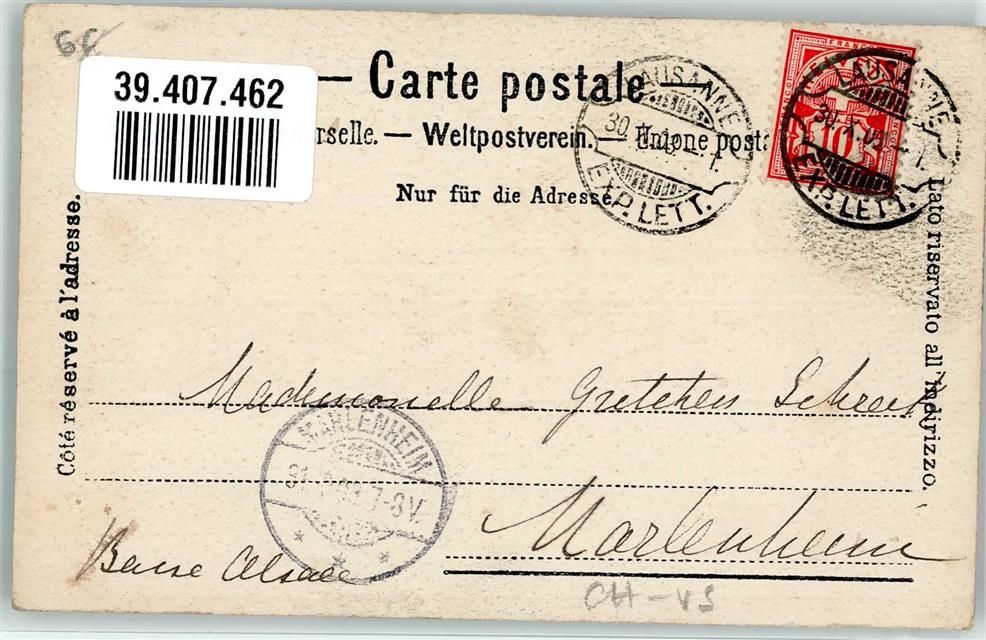 39.407.462
— Carte postale
rselle. — Weltpostverein. — Unione posta
Nur für die Adresse.
Côté réservé à l'adresse.
Lato riservato all'indirizzo.
LAUSANNE
30. X.
EXP. LETT.
FRANCO
10
LAUSANNE
30. X.
EXP. LETT.
Mademoiselle Gretchen
MARLENHEIM
31. 7-8V.
Marlenheim
Basse Alsace
CH-VS